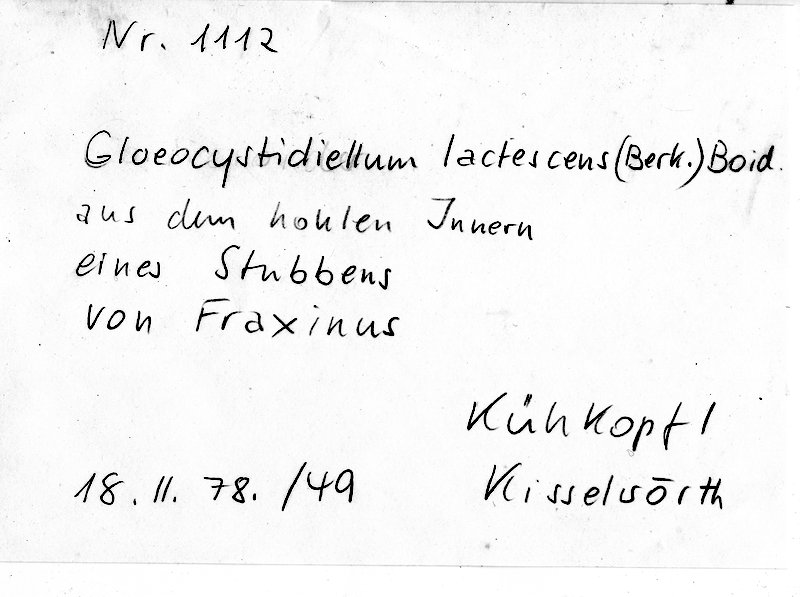 Nr. 1112
Gloeocystidiellum lactescens (Berk.) Boid.
aus dem hohlen Innern
eines Stubbens
von Fraxinus
Kühkopf /
18. II. 78. /49 Kisselwörth